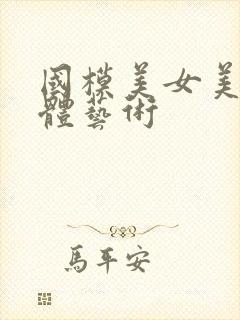 國模美女美
體藝術
馬平安